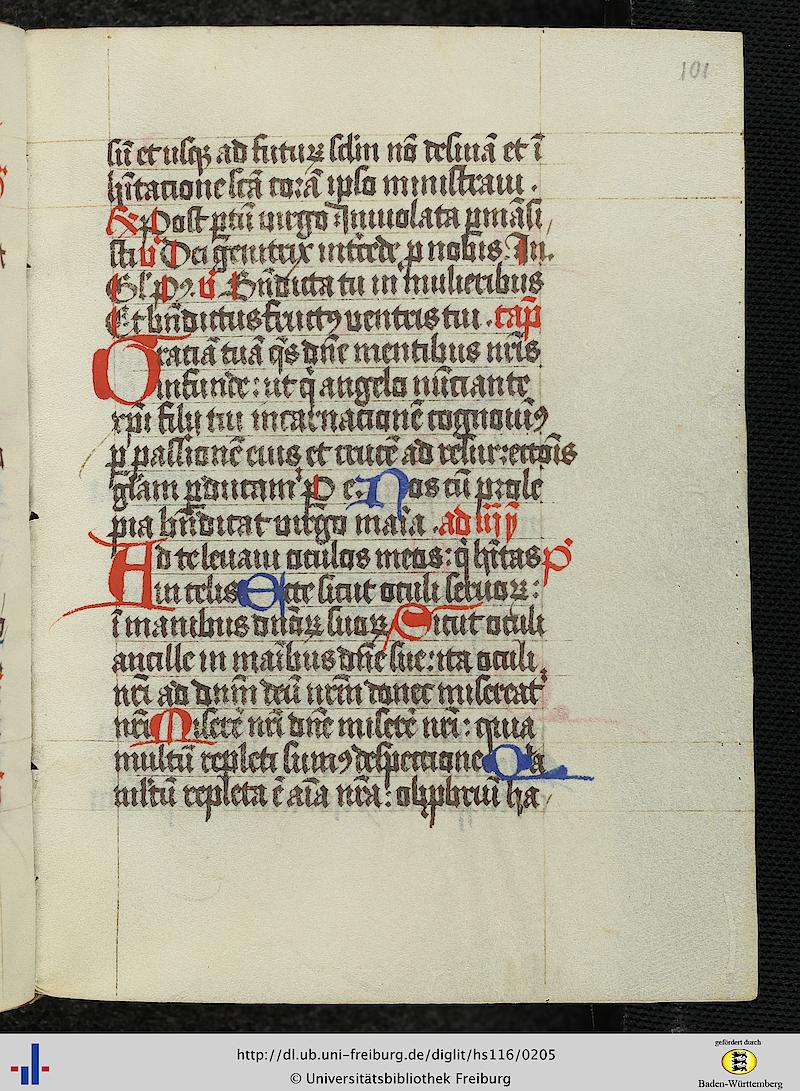 101
sū et usqꝫ ad futurꝝ sclm nō desinā et ī
hītacione scā corā ipso ministraui .
℞ Post ptū uirgo Inuiolata pmāsi
sti ℣ Dei genitrix intercede p nobis. In.
Gl' pꝰ. ℣ Bn̄dicta tu in mulieribus
Et bn̄dictus fructꝰ uentris tui . cap̄
Gratiā tuā qs dn̄e mentibus nr̄is
infunde : ut q̄ angelo nūciante
xpī filij tui incarnacionē cognouimꝰ
p passionē eius et crucē ad resurrectōis
glām pducamꝰ P e. Nos cū prole
pia bn̄dicat uirgo maria . ad iiij
Ad te leuaui oculos meos : q̄ hītas pꝰ
in celis Ecce sicut oculi seruoꝝ :
ī manibus dn̄oꝝ suoꝝ Sicut oculi
ancille in maībus dn̄e sue : ita oculi
nr̄i ad dn̄m deū nr̄m donec misereatꝰ
nr̄i Miserē nr̄i dn̄e miserē nr̄i : quia
multū repleti sumꝰ despectione Qa
multū repleta ē aīa nr̄a : obprobriū ha
http://dl.ub.uni-freiburg.de/diglit/hs116/0205
© Universitätsbibliothek Freiburg
gefördert durch
Baden-Württemberg